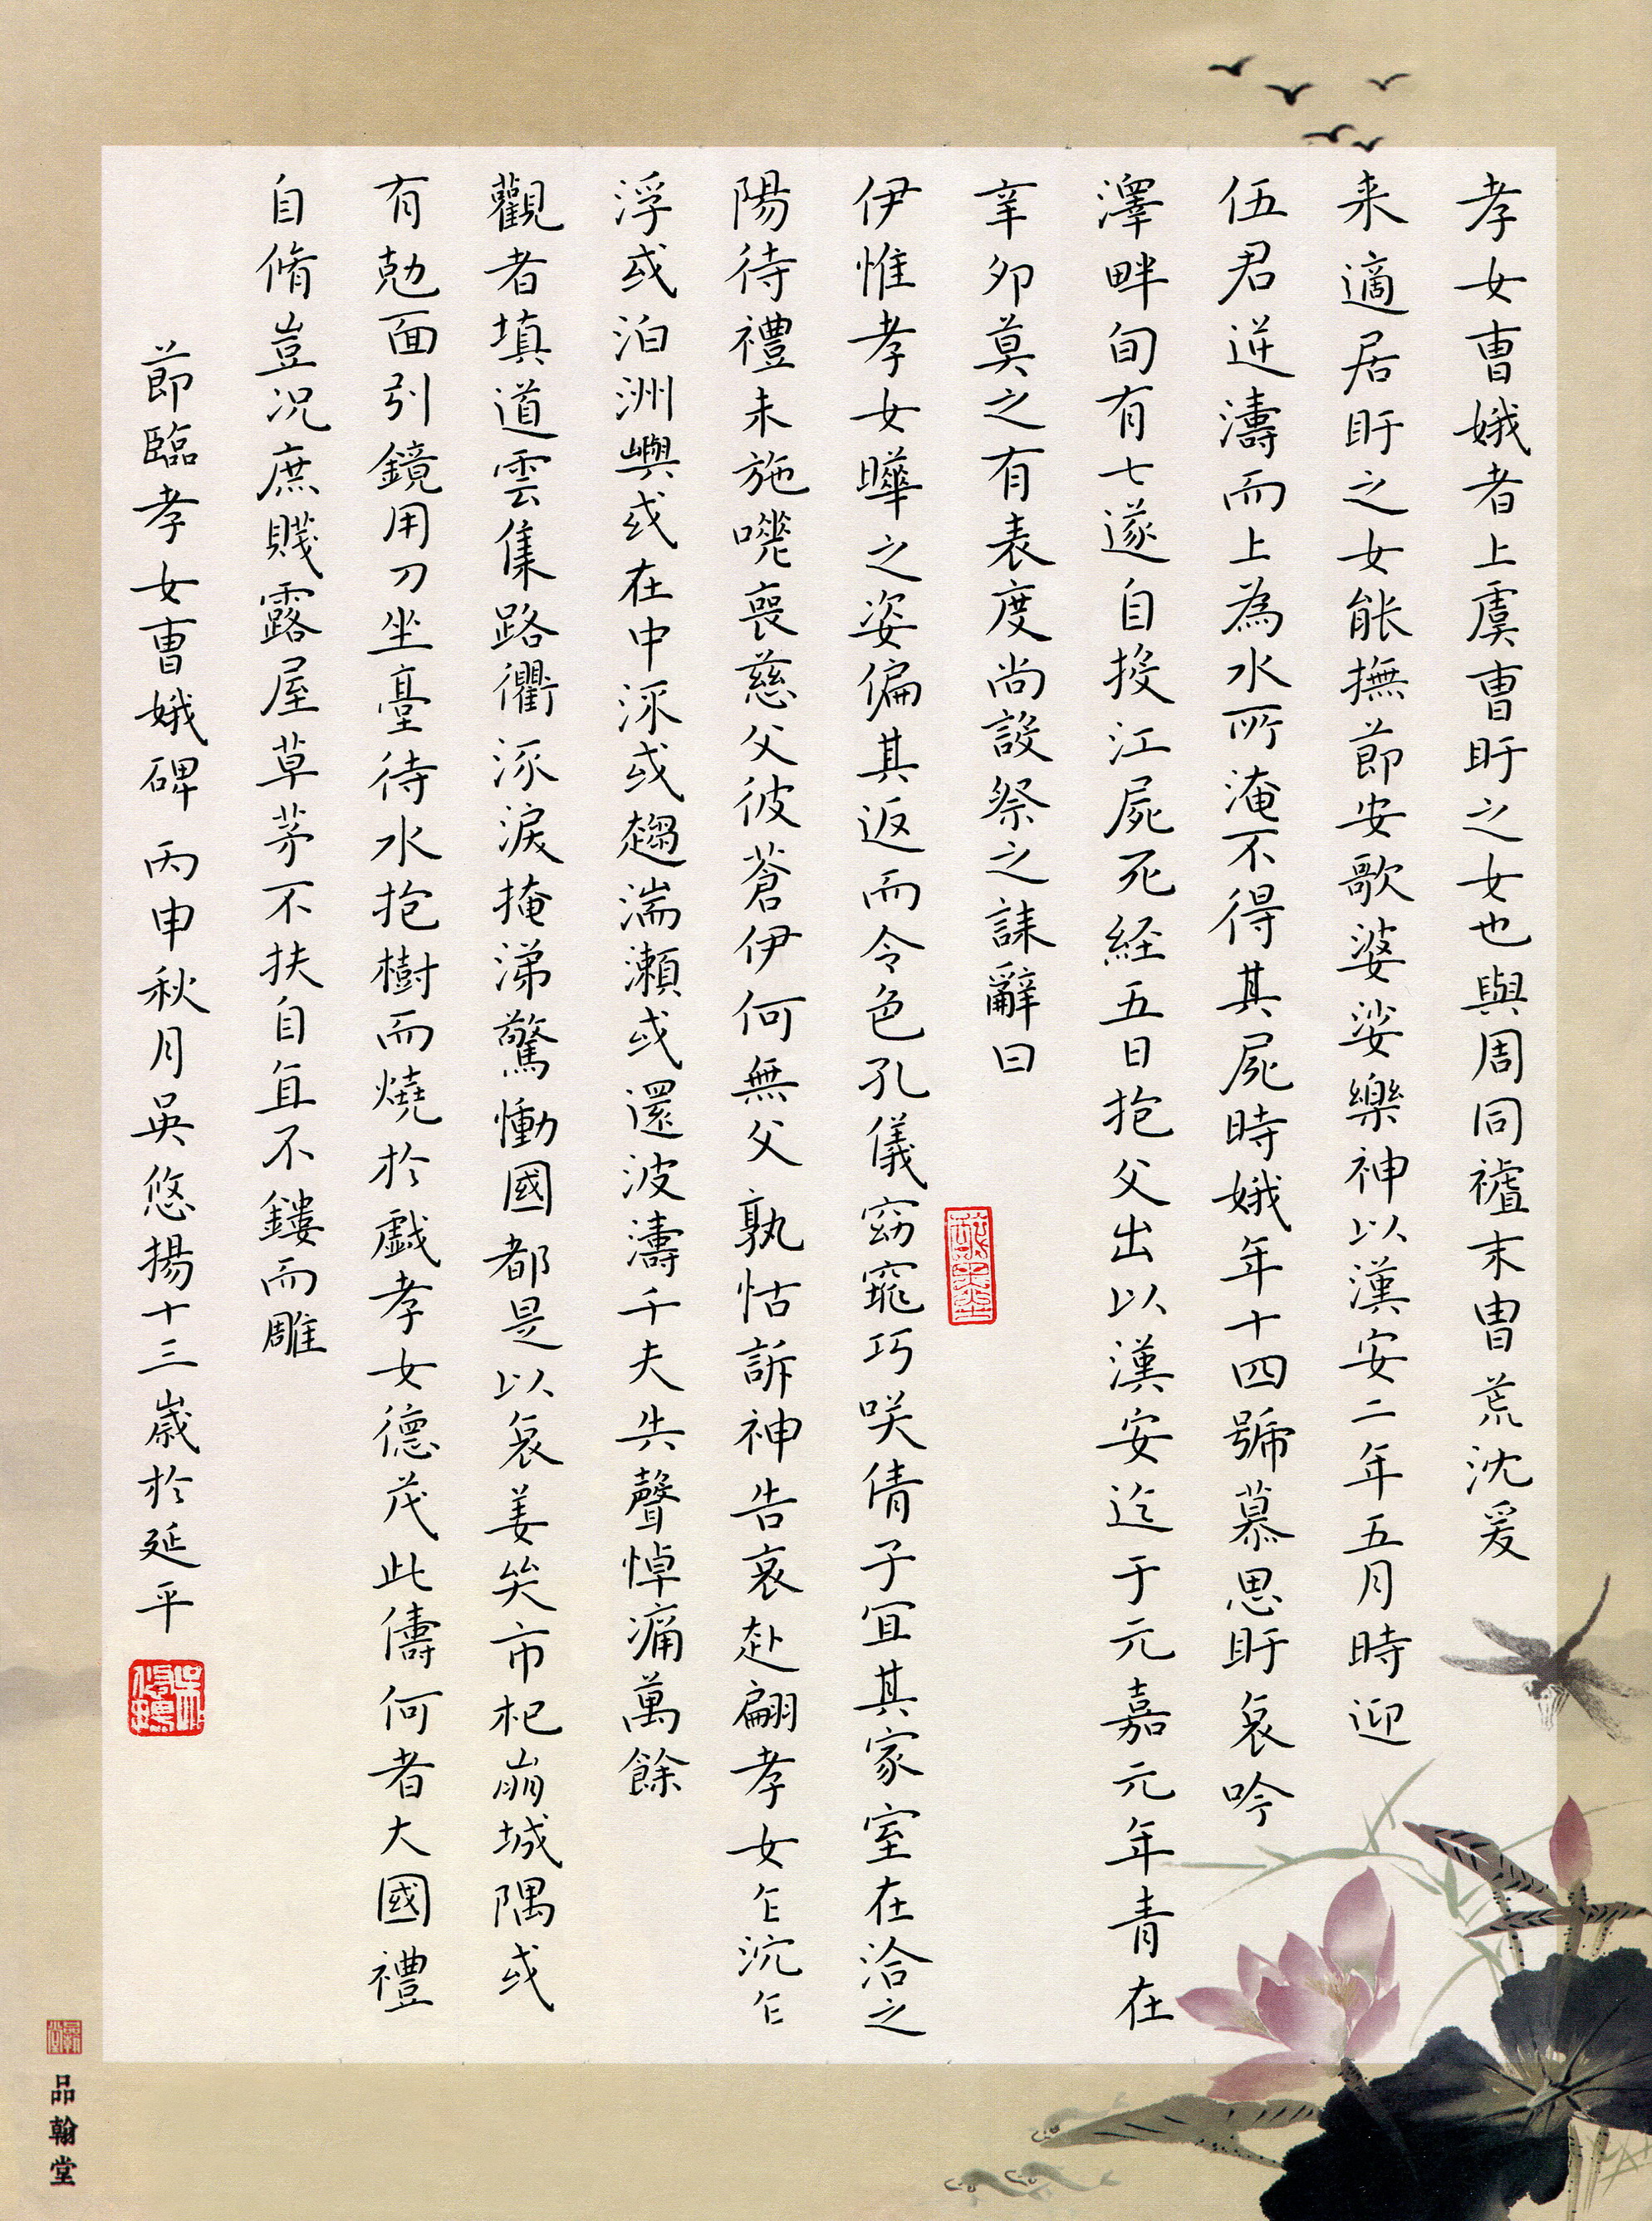 孝女曺娥者上虞曺盱之女也與周同禇末冑荒沈爰
来適居盱之女能撫節安歌婆娑樂神以漢安二年五月時迎
伍君逆濤而上為水所淹不得其屍時娥年十四號慕思盱哀吟
澤畔旬有七遂自投江屍死経五日抱父出以漢安迄于元嘉元年青在
辛卯莫之有表度尚設祭之誄辭曰
伊惟孝女曄之姿偏其返而令色孔儀窈窕巧咲倩子冝其家室在洽之
陽待禮未施嗟喪慈父彼蒼伊何無父孰怙訴神告哀赴翩孝女乍沉乍
浮或泊洲嶼或在中流或趨湍瀬或還波濤千夫失聲悼痛萬餘
觀者填道雲集路衢流淚掩涕驚慟國都是以哀姜哭市杞崩城隅或
有勊面引鏡用刀坐臺待水抱樹而燒於戯孝女德茂此儔何者大國禮
自脩豈况庶賤露屋草茅不扶自直不鏤而雕
節臨孝女曺娥碑 丙申秋月吳悠揚十三歳於延平
品翰堂